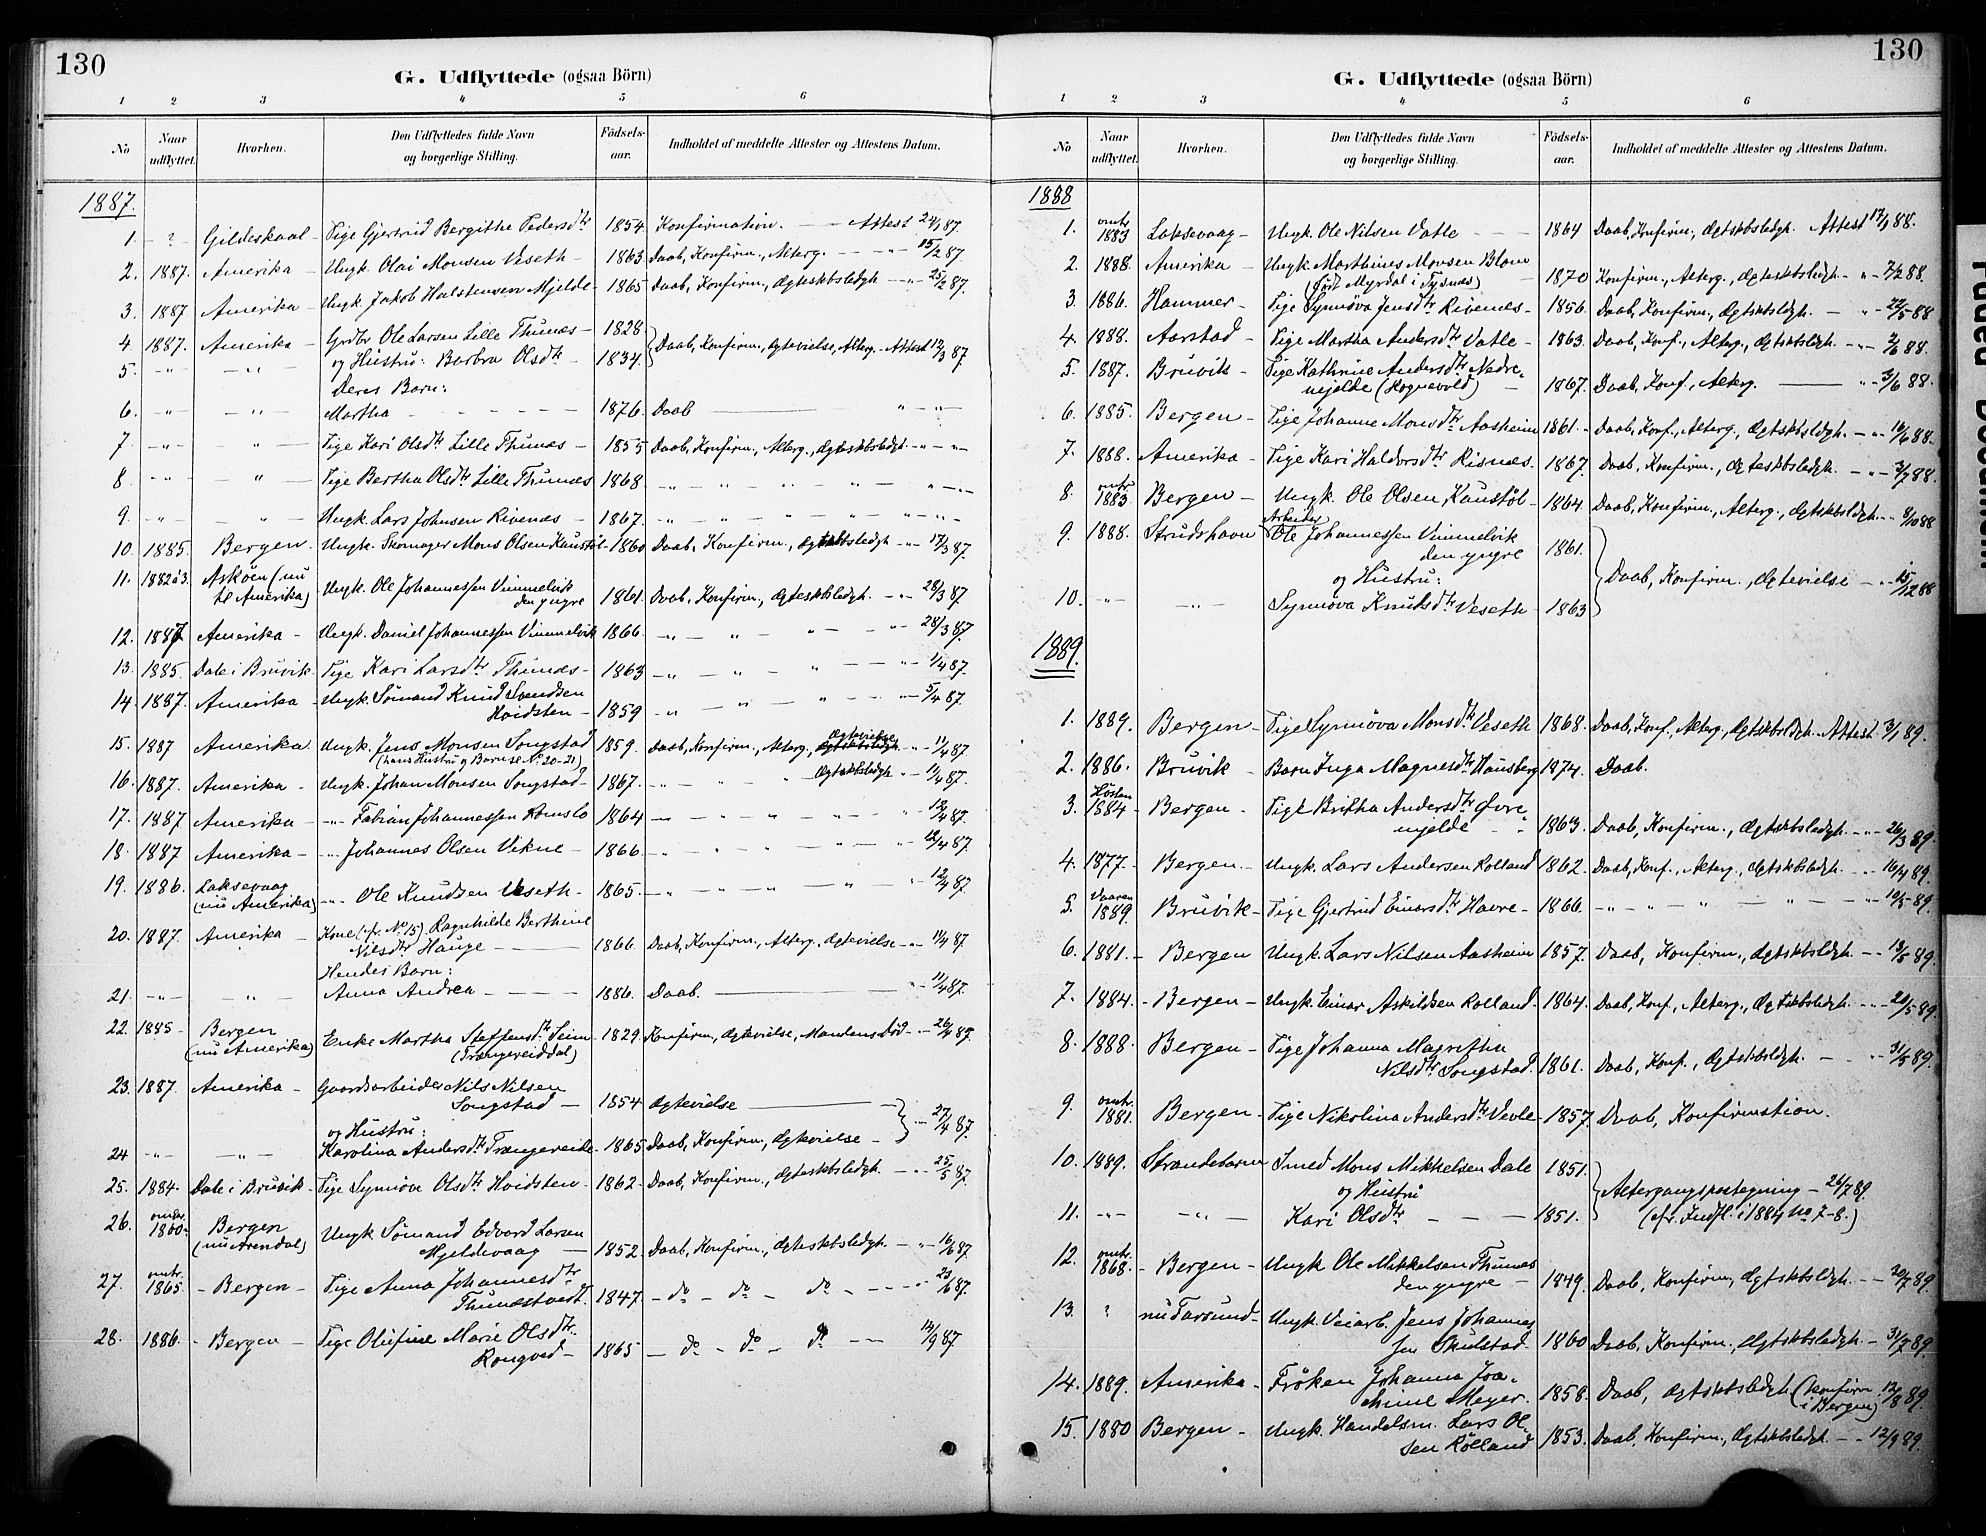 130
G. Udflyttede (ogsaa Börn)
1 2 3 4 5 6
No Naar udflyttet. Hvorhen. Den Udflyttedes fulde Navn og borgerlige Stilling. Födsels-aar. Indholdet af meddelte Attester og Attestens Datum.
1887.
1. - ? - Gildeskaal - Pige Gjertrud Bergithe Pedersdtr 1854. Konfirmation. - Attest 24/1 87.
2. 1887. Amerika - Ungk. Olai Monsen Veseth - 1863 Daab, Konfirm., Alterg. - " - 15/2 87.
3. 1887 Amerika - Ungk. Jakob Halstensen Mjelde - 1865 Daab, Konfirm., Ægteskbsledgh - " - 25/2 87.
4. 1887. Amerika - Grdbr Ole Larsen Lille Thunæs - 1828
5. - " - - " - og Hustru: Barbra Olsdtr - 1834. Daab, Konfirm., Ægtevielse, Alterg. - Attest 12/3 87
Deres Barn:
6. - " - - " - Martha - - - 1876. Daab " - " -
7 - " - " - Pige Kari Olsdtr Lille Thunæs - 1855 Daab, Konfirm., Alterg., Ægtskbsledgh. - " - " -
8 - " - " - Pige Bertha Olsdtr Lille Thunæs 1868. - " - " - " - " - " - " -
9. - " - " - Ungk. Lars Johnsen Rivenæs - 1867. - " - " - " - " - " - " -
10. 1885. Bergen. Ungk. Skomager Mons Olsen Kaustøl - 1860 Daab, Konfirm., Ægtskbsledgh - " - 17/3 87.
11. 1882 à 3. Askøen (nu til Amerika) Ungk. Ole Johannessen Vimmelvik den yngre 1861. Daab, Konfirm., Ægteskbsledgh. - " - 28/3 87
12. 1887 Amerika - Ungk. Daniel Johannessen Vimmelvik 1866. - " - " - " - " - 28/3 87.
13. 1885. Dale i Bruvik - Pige Kari Larsdtr Thunæs - 1863 - " - " - " - " - 1/4 87.
14. 1887. Amerika - Ungk. Sømand Knud Svendsen Hvidsten - 1859 - " - " - " - " - 5/4 87.
15. 1887 Amerika - Ungk. Jens Monsen Songstad (hans Hustru og Barn se No. 20-21) 1859. Daab, Konfirm., Alterg., Ægtskbsledgh Ægtevielse - " - 11/4 87
16. 1887. Amerika - Ungk. Johan Monsen Songstad - 1867. - " - " - " Ægtskbsledgh " - 11/4 87.
17. 1887 Amerika - - " - Fabian Johannessen Romslo 1864 - " - " - " - " - 12/4 87.
18. 1887 Amerika - - " - Johannes Olsen Vikne - 1866. - " - " - " - " - 12/4 87
19. 1886. Laksevaag (nu Amerika) - " - Ole Knudsen Veseth - 1865. - " - " - " - " - 12/4 87.
20. 1887. Amerika - Kone (cfr. No. 15) Ragnhilde Berthine Nilsdtr Hauge - 1866. Daab, Konfirm., Alterg. Ægtevielse - " - 11/4 87
Hendes Barn:
21. - " - - " - Anna Andrea - 1886. Daab. - " - 11/4 87.
22. 1885 - Bergen (nu Amerika) Enke Martha Steffensdtr Seim (Trængereiddal) 1829. Konfirm., Ægtevielse, Mandens Død - " - 26/4 87.
23. 1887. Amerika - Gaardsarbeider Nils Nilsen Songstad - 1854 Ægtevielse
og Hustru:
24 - " - - " - Karolina Andersdtr Trængereide - 1865 Daab, Konfirm., Ægtevielse - " - 27/4 87.
25. 1884. Dale i Bruvik - Pige Synnøve Olsdtr Hvidsten - 1862. Daab, Konfirm., Ægteskbsledgh. - " - 25/5 87.
26. omtr. 1860. Bergen (nu Arendal) Ungk Sømand Edvard Larsen Mjeldevaag - 1852. Daab, Konfirm., Ægteskbsledgh. - " - 16/6 87.
27. omtr. 1865. - Bergen - Pige Anna Johannesdtr Thunæstvedt. 1847. - do - do - do - " - 23/6 87.
28. 1886. - Bergen - Pige Oliefine Marie Olsdtr. Rongved - 1865 - do - do - do - 14/9 87.
130
G. Udflyttede (ogsaa Börn)
1 2 3 4 5 6
No Naar udflyttet. Hvorhen. Den Udflyttedes fulde Navn og borgerlige Stilling. Födsels-aar. Indholdet af meddelte Attester og Attestens Datum.
1888
1. omtr. 1883 Laksevaag - Ungk. Ole Nilsen Vatle - 1864 Daab, Konfirm., Ægtskbsledgh. Attest 17/1 88.
2. 1888. Amerika - Ungk. Marthines Monsen Blom (født Myrdal i Tysnæs) 1870 Konfirm., Alterg., Ægteskbsledgh - " - 7/2 88.
3. 1886. Hammer - Pige Synnøva Jensdtr Rivenæs - 1856. Daab, Konfirm., Ægtskbsledgh. - " - 22/5 88
4. 1888. Aarstad - Pige Martha Andersdtr Vatle - 1863. Daab, Konf., Alterg., Ægtskbsledgh. - " - 2/6 88.
5. 1887. Bruvik - Pige Kathrine Andersdtr Nedremjelde (Rognevold) - 1867. Daab, Konf., Alterg. - " - 3/6 88.
6. 1885. Bergen - Pige Johanne Monsdtr Aasheim 1861. - Daab, Konf., Alterg., Ægtskbsledgh. - " - 16/6 88.
7. 1888. Amerika - Pige Kari Haldorsdtr Risnæs - 1867. Daab, Konfirm., Ægteskbsledgh. - " - 3/7 88.
8. omtr. 1883. Bergen - Ungk. Ole Olsen Kaustøl - 1864. Daab, Konfirm., Alterg., Ægtskbsledgh. - 8/10 88
9. 1888. Strudshavn Arbeider Ole Johannessen Vimmelvik den yngre 1861.
og Hustru:
10. - " - - " - Synnøva Knudsdtr Veseth - 1863 Daab, Konfirm., Ægtevielse - " - 15/12 88
1889.
1. 1889. Bergen - Pige Synnøva Monsdtr Veseth 1868. Daab, Konf., Alterg., Ægtskbsledgh. Attest 3/1 89.
2. 1886. Bruvik - Barn Inga Magnesdtr Hausberg 1874. Daab.
3. Høsten 1884 - Bergen - Pige Britha Andersdtr Øvre mjelde - 1863. Daab, Konfirm., Ægtskbsledgh. - " - 26/3 89.
4. 1877. - Bergen - Ungk. Lars Andersen Rolland 1862. Daab, Konf., Alterg., Ægtskbsledgh. " 16/4 89.
5. Vaaren 1889. Bruvik - Pige Gjertrud Einarsdtr Havre - 1866. - " - " - " - " - " - 10/5 89.
6. 1881. - Bergen Ungk. Lars Nilsen Aasheim 1857. Daab, Konfirm., Ægtskbsledgh. - " - 18/5 89.
7. 1884. - Bergen - Ungk. Einar Askildsen Rolland. 1864. Daab, Konf., Alterg., Ægtskbsledgh. - " - 20/5 89.
8. 1888. Bergen - Pige Johanna Magritha Nilsdtr Songstad. 1861. Daab, Konf., Ægtskbsledgh. - " - 31/5 89.
9. omtr. 1881. Bergen - Pige Nikolina Andersdtr Vevle - 1857. Daab, Konfirmation.
10. 1889. Strandebarm Smed Mons Mikkelsen Dale 1851.
og Hustru
11. - " - - " - Kari Olsdtr - 1851. Altergangsantegning - 26/7 89. (cfr. Indfl. i 1884 No 7-8.)
12. omtr. 1868. - Bergen - Ungk Ole Mikkelsen Thunæs den yngre - 1849. Daab, Konfirm., Ægtskbsledgh. - 30/7 89.
13. ? nu Farsund - Ungk. Veiarb. Jens Johannessen Skulstad - 1860 Daab, Konfirm., Ægtskbsledgh. - 31/7 89.
14. 1889. Amerika - Frøken Johanna Joachime Meyer. 1858. Daab, Ægtskbsledgh. (Konfirm. i Bergen) 12/8 89.
15. 1880 Bergen - Ungk. Handelsm. Lars Olsen Rolland 1853. Daab, Konfirm., Ægtskbsledgh. - " - 12/9 89.